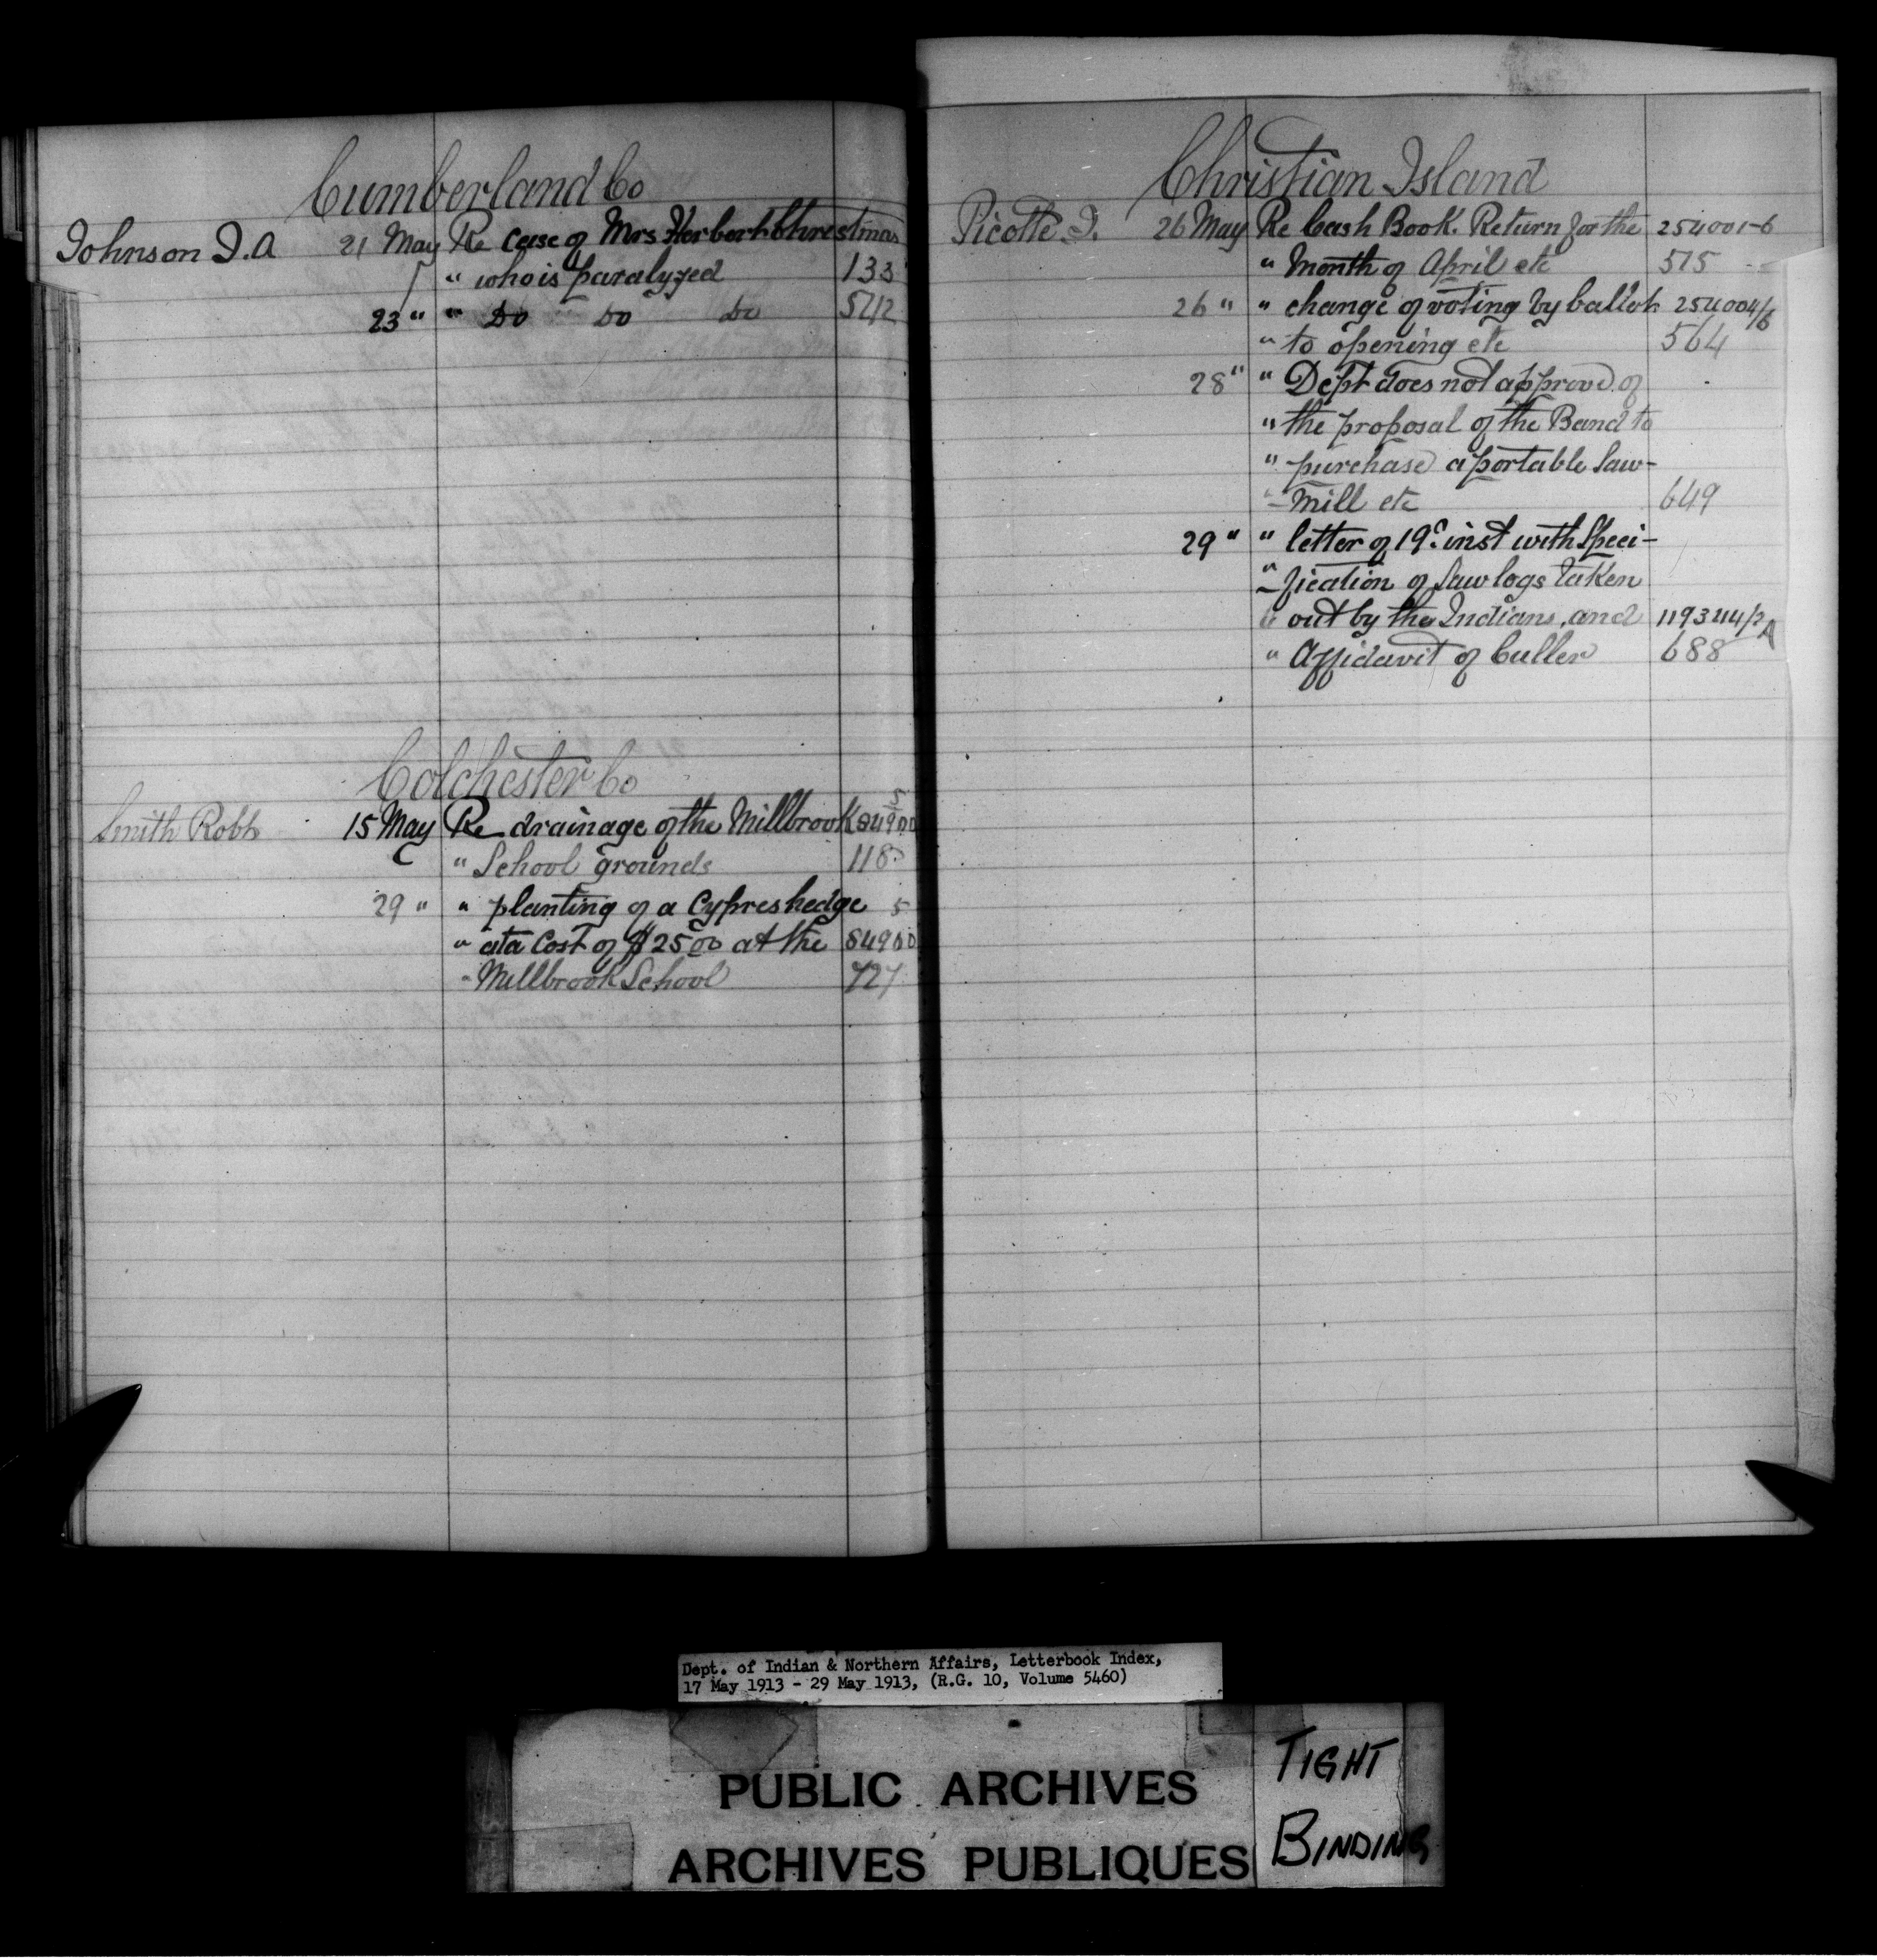 Cumberland Co
Johnson J. A 21 May Re Case of Mrs Herbert Chrestmas
" who is paralyzed 133
23 " " Do Do Do 542
Colchester Co
Smith Robt 15 May Re drainage of the Millbrook 84900/5
" School grounds 118
29 " " planting of a Cypres hedge 5
" at a Cost of $25 00 at the 84900
" Millbrook School 727
Christian Island
Picotte J. 26 May Re Cash Book. Return for the 254001-6
" Month of April etc 515
26 " " change of voting by ballot 254004/6
" to opening etc 564
28 " " Dept does not approve of
" the proposal of the Band to
" purchase a portable Saw-
" Mill etc 649
29 " " letter of 19th inst with Speci-
" fication of Saw logs taken
" out by the Indians, and 119344/2 A
" Affidavit of Culler 688
Dept. of Indian & Northern Affairs, Letterbook Index,
17 May 1913 - 29 May 1913, (R.G. 10, Volume 5460)
PUBLIC ARCHIVES
ARCHIVES PUBLIQUES
TIGHT
BINDING